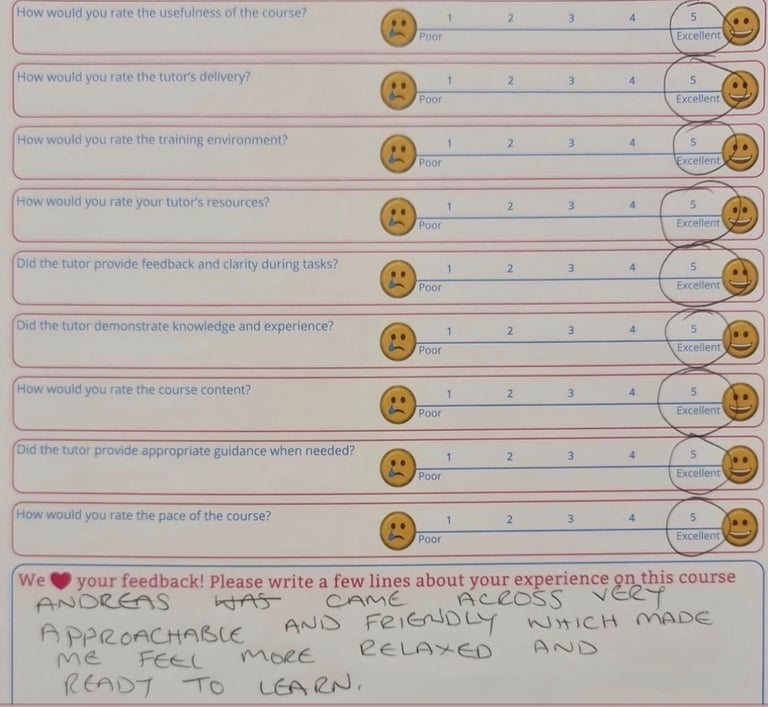 How would you rate the usefulness of the course?
1 2 3 4 5
Poor Excellent
How would you rate the tutor's delivery?
1 2 3 4 5
Poor Excellent
How would you rate the training environment?
1 2 3 4 5
Poor Excellent
How would you rate your tutor's resources?
1 2 3 4 5
Poor Excellent
Did the tutor provide feedback and clarity during tasks?
1 2 3 4 5
Poor Excellent
Did the tutor demonstrate knowledge and experience?
1 2 3 4 5
Poor Excellent
How would you rate the course content?
1 2 3 4 5
Poor Excellent
Did the tutor provide appropriate guidance when needed?
1 2 3 4 5
Poor Excellent
How would you rate the pace of the course?
1 2 3 4 5
Poor Excellent
We ❤ your feedback! Please write a few lines about your experience on this course
ANDREAS WAS CAME ACROSS VERY
APPROACHABLE AND FRIENDLY WHICH MADE
ME FEEL MORE RELAXED AND
READY TO LEARN.